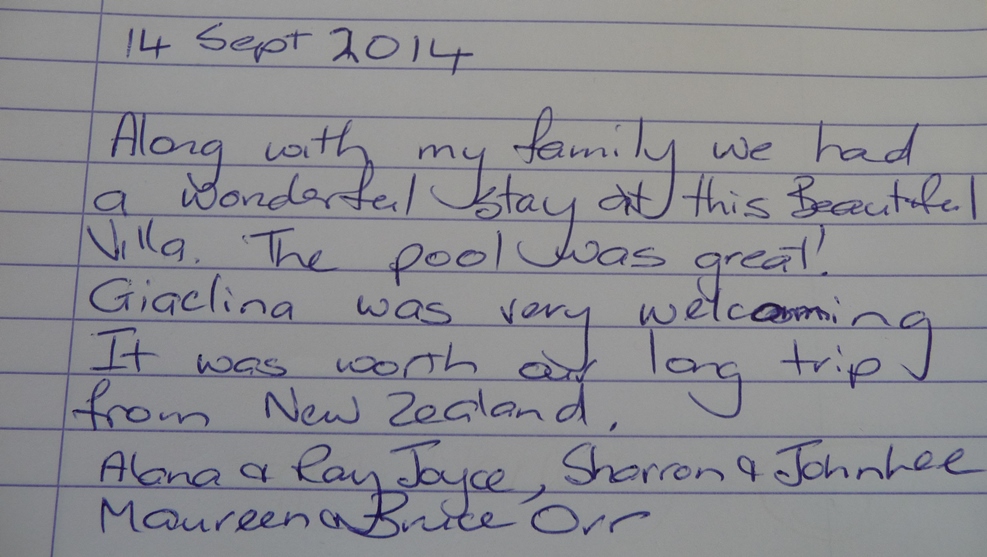 14 Sept 2014
Along with my family we had
a wonderful stay at this Beautiful
Villa. The pool was great!
Giaclina was very welcoming
It was worth our long trip
from New Zealand.
Alana & Ray Joyce, Sharron & John Lee
Maureen & Bruce Orr